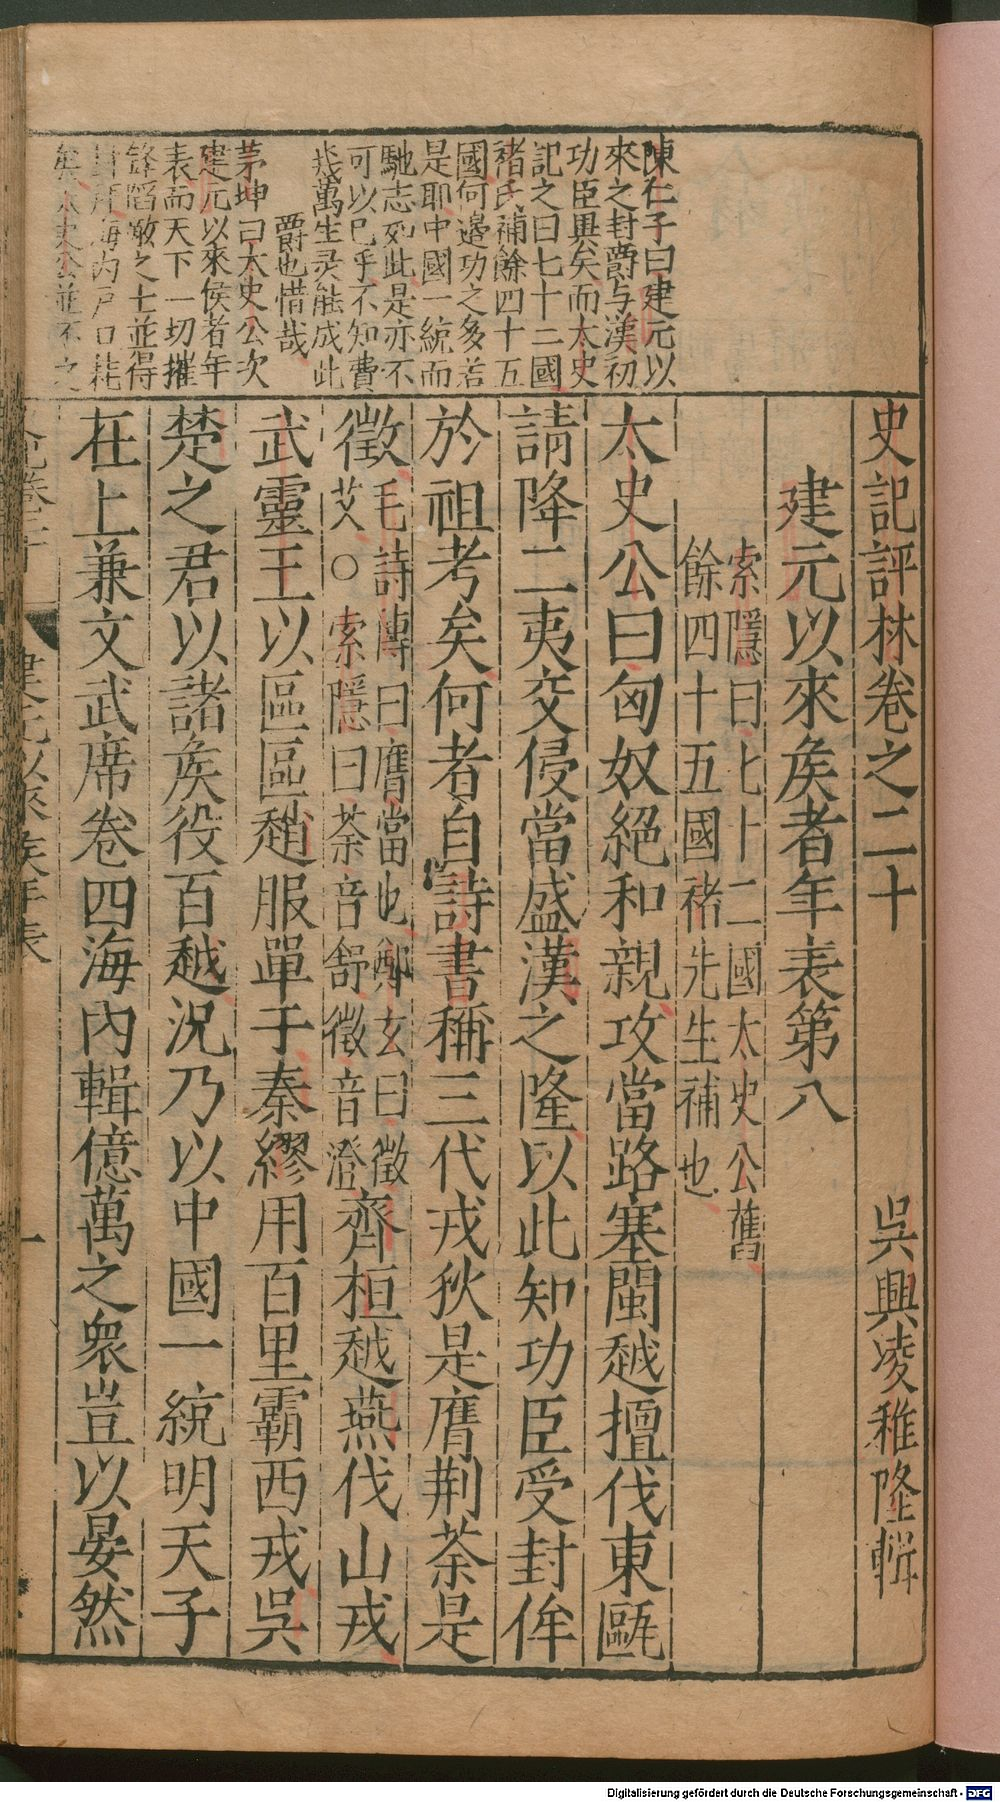 陳仁子曰建元以
來之封爵与漢初
功臣異矣而太史
記之曰七十二國
褚氏補餘四十五
國何邉功之多若
是耶中國一統而
馳志如此是亦不
可以已乎不知費
㡬萬生灵能成此
爵也惜哉
茅坤曰太史公次
建元以來侯者年
表而天下一切摧
鋒蹈敵之士並得
封矣海内戶口耗
矣太史公並不之
史記評林卷之二十
吳興凌稚隆輯
建元以來矦者年表第八
索隱曰七十二國太史公舊
餘四十五國褚先生補也
太史公曰匈奴絕和親攻當路塞閩越擅伐東甌
請降二夷交侵當盛漢之隆以此知功臣受封侔
於祖考矣何者自詩書稱三代戎狄是膺荆荼是
徵
毛詩傳曰膺當也鄭玄曰徵
艾○索隱曰荼音舒徵音澄
齊桓越燕伐山戎
武靈王以區區趙服單于秦繆用百里霸西戎吳
楚之君以諸矦役百越況乃以中國一統明天子
在上兼文武席卷四海內輯億萬之衆豈以晏然
建元以來矦年表
一
Digitalisierung gefördert durch die Deutsche Forschungsgemeinschaft - DFG